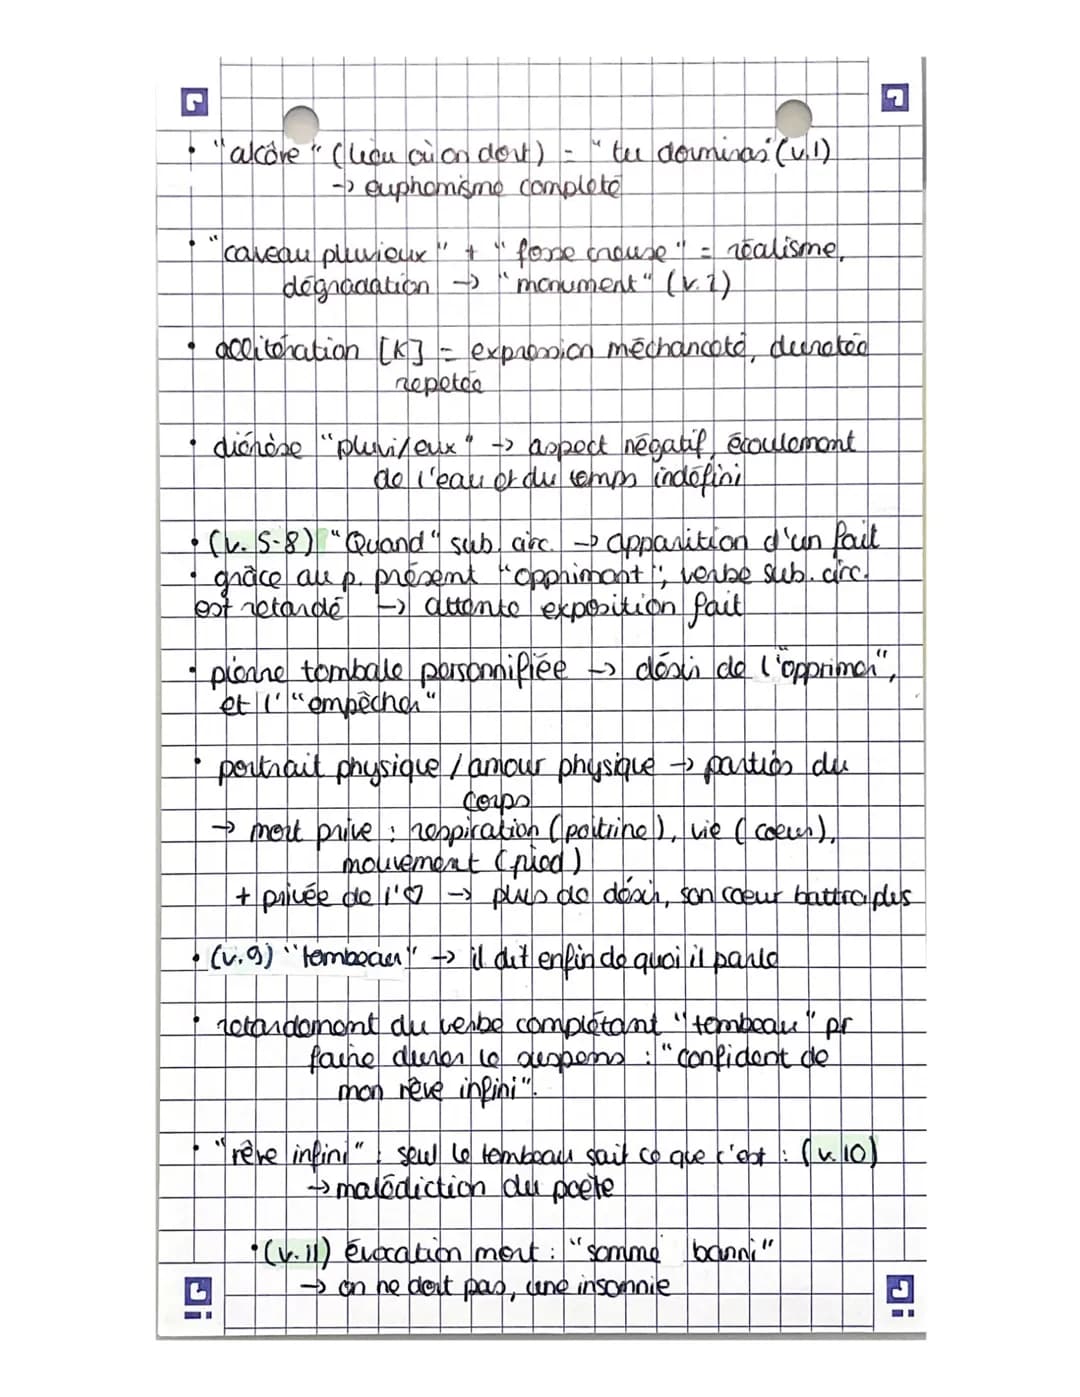 • "alcôve" (lieu où on dort) = "tu dormiras" (v.1)
-> euphémisme complété
• "caveau pluvieux" + "fosse creuse" = réalisme,
dégradation -> "monument" (v.2)
• allitération [K] = expression méchanceté, dureté
répétée
• diérèse "pluvi/eux" -> aspect négatif, écoulement
de l'eau et du temps indéfini
• (v. 5-8) "Quand" sub. circ. -> apparition d'un fait
• grâce au p. présent "opprimant"; verbe sub. circ.
est retardé -> attente exposition fait
• pierre tombale personnifiée -> désir de l'"opprimer",
et l'"empêcher"
• portrait physique / amour physique -> parties du
corps
-> mort prive : respiration (poitrine), vie (coeur),
mouvement (pied)
+ privée de l'♡ -> plus de désir, son coeur battra plus
• (v.9) "tombeau" -> il dit enfin de quoi il parle
• retardement du verbe complétant "tombeau" pr
faire durer le suspens : "confident de
mon rêve infini".
• "rêve infini" : seul le tombeau sait ce que c'est : (v.10)
-> malédiction du poète
• (v.11) évocation mort : "somme banni"
-> on ne dort pas, une insomnie